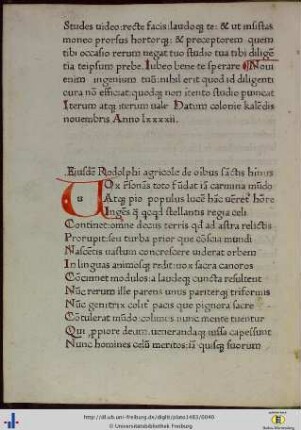 Studes uideo: recte facis: laudoq; te: & ut insistas
moneo prorsus hortorq;: & preceptorem quem
tibi occasio rerum negat tuo studio tua tibi diligē
tia teipsum prebe. Iubeo bene te sperare Noui
enim ingenium tuū: nihil erit quod id diligenti
cura nō efficiat: quodq; non itento studio puincat
Iterum atq; iterum uale Datum colonie kalēdis
nouembris Anno lxxxxii.
Eiusdē Rodolphi agricole de oībus sāctis hīnus
Vox rēsonās toto fūdat iā carmina mūdo
Atq; pio populus lucē hāc uēret' hōre
Ingēs q̄ qcqd stellantis regia celi
Continet: omne decus terris qd ad astra relictis
Prorupit: seu turba prior que cōscia mundi
Nascētis uastum concrescere uiderat orbem
In linguas animosq; redit: uox sacra canoros
Cōcinnet modulos: a laudeq; cuncta resultent
Nūc rerum ille parens unus pariterq; triformis
Nūc genitrix colit' pacis que pignora sacre
Cōtulerat mūdo columes nunc mente tuentur
Qui ppiore deum. uenerandaq; iussa capessunt
Nunc homines celū meritos: iā quisq; suorum
http://dl.ub.uni-freiburg.de/diglit/plato1483/0049
© Universitätsbibliothek Freiburg